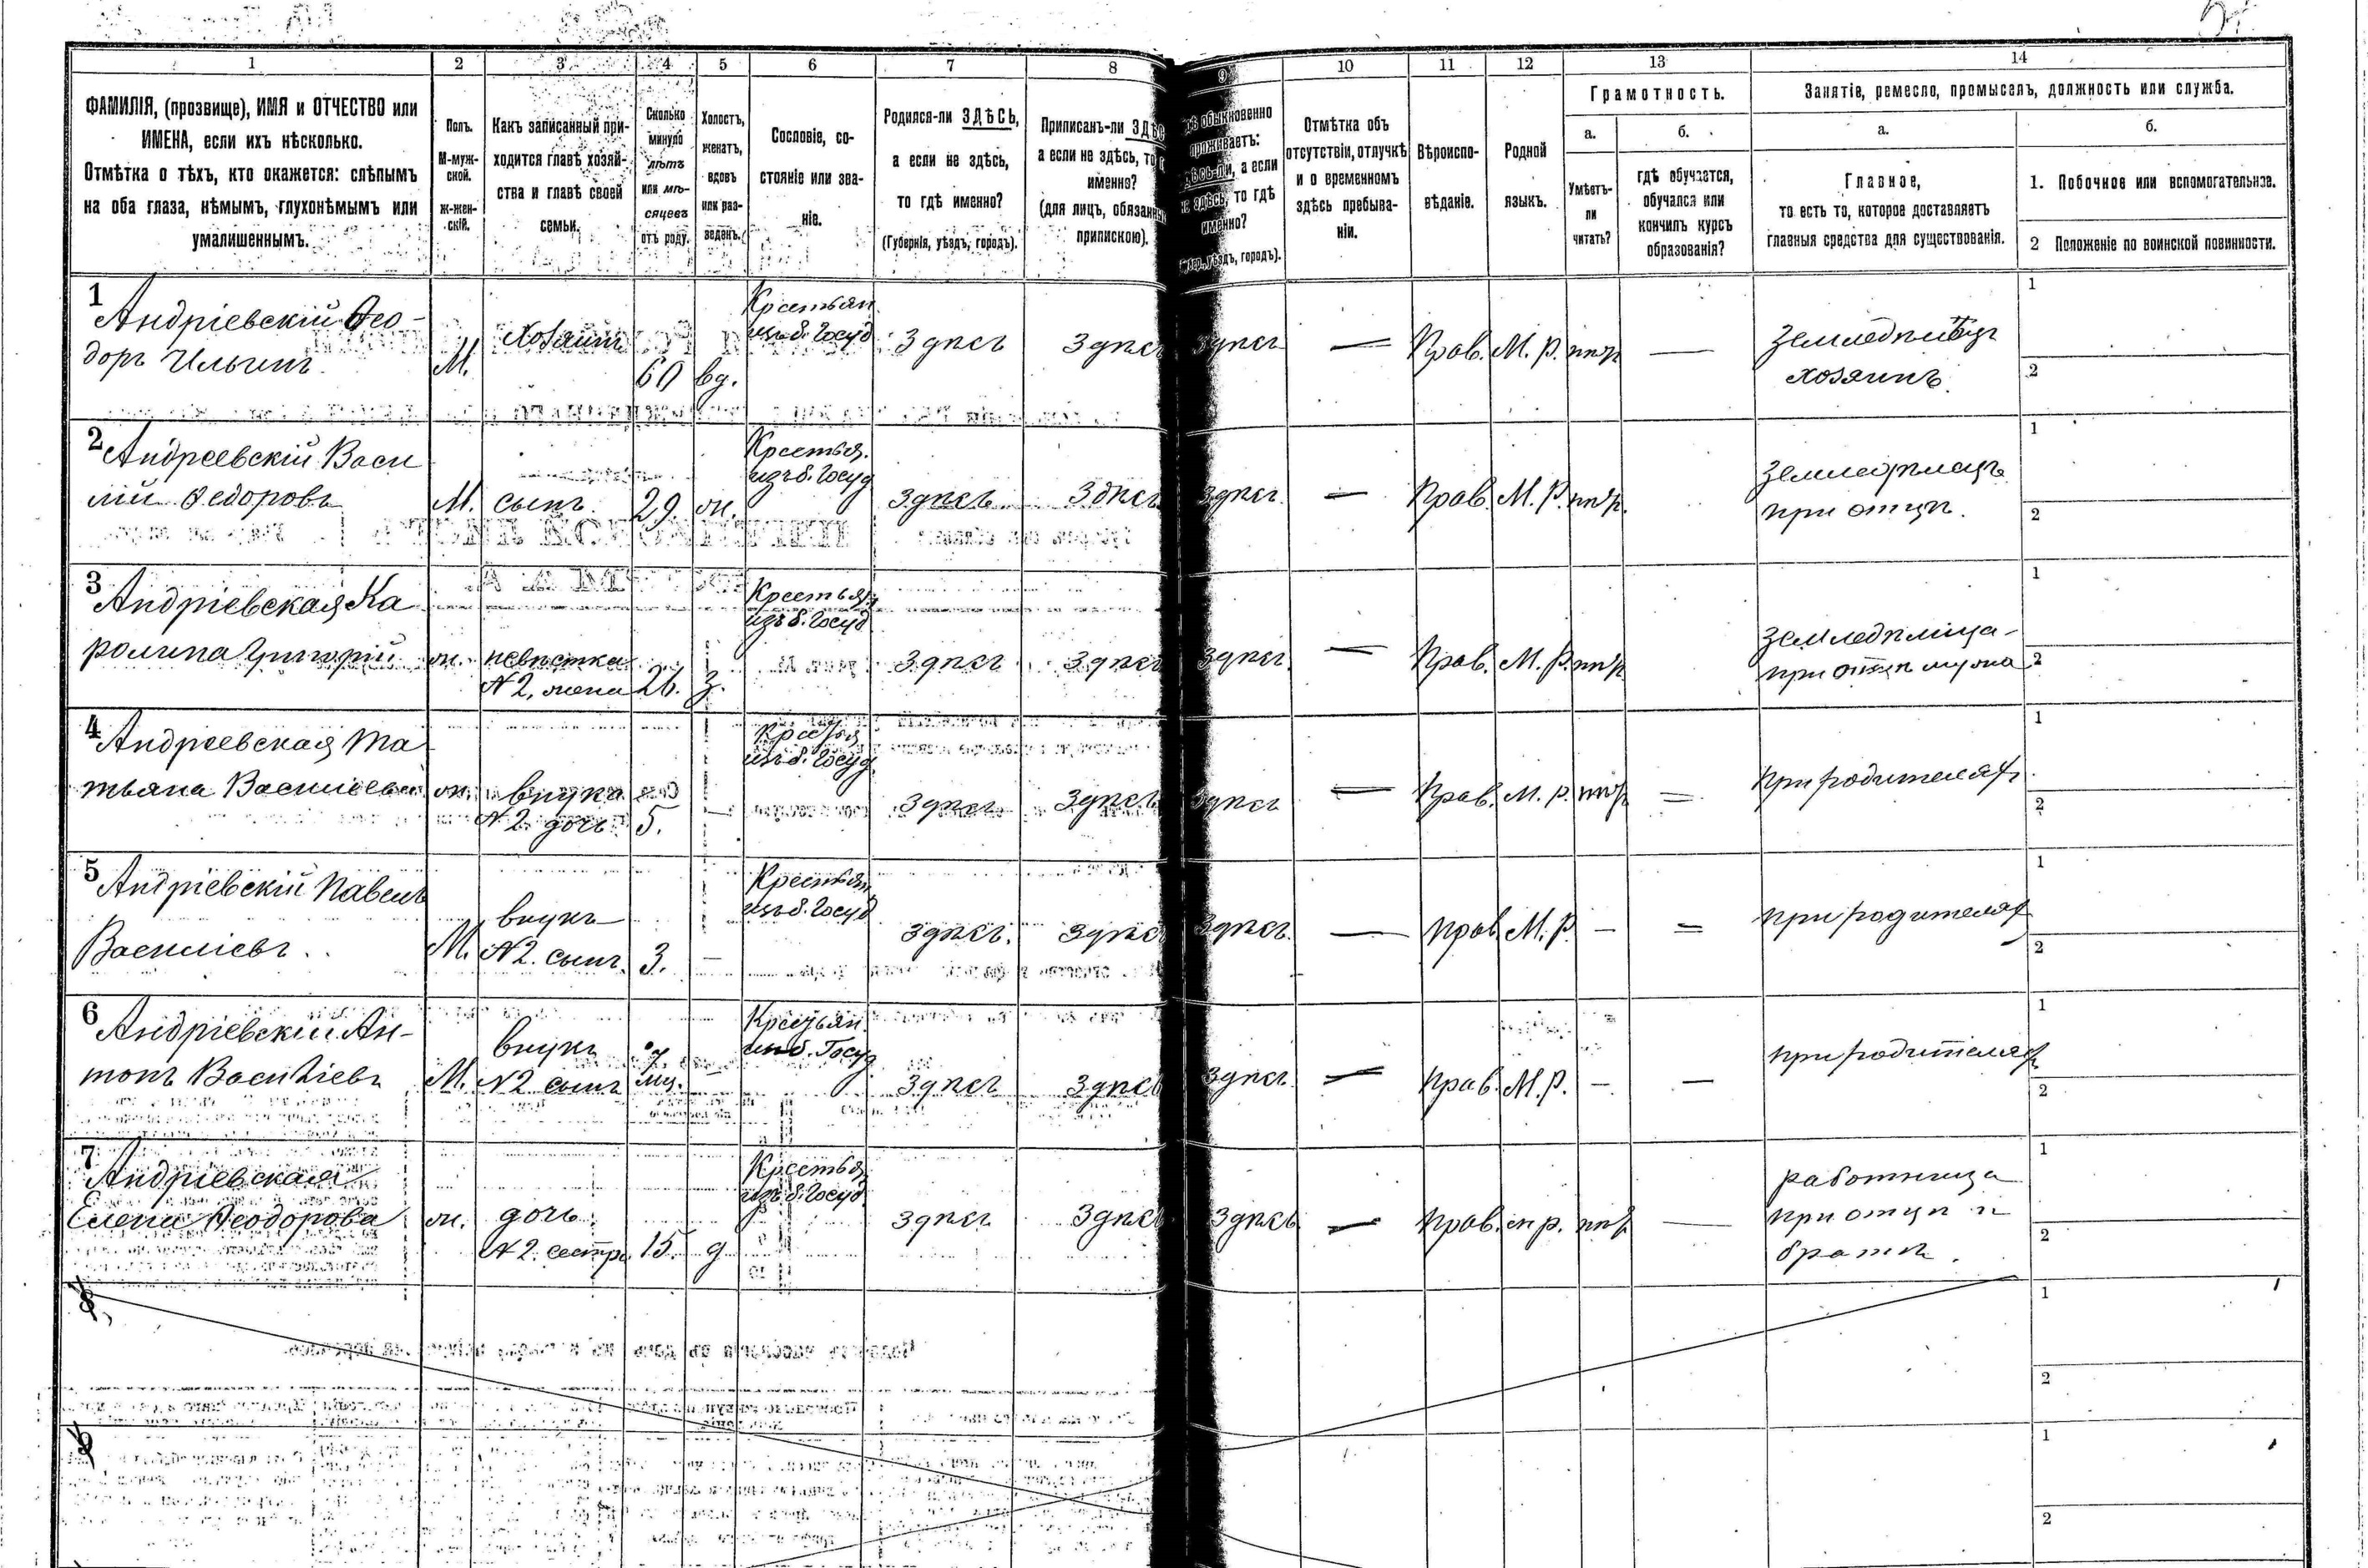 1 2 3 4 5 6 7 8 9 10 11 12 13 14
ФАМИЛІЯ, (прозвище), ИМЯ и ОТЧЕСТВО или
ИМЕНА, если ихъ нѣсколько.
Отмѣтка о тѣхъ, кто окажется: слѣпымъ
на оба глаза, нѣмымъ, глухонѣмымъ или
умалишеннымъ.
Полъ.
М-муж-
ской.
ж-жен-
скій.
Какъ записанный при-
ходится главѣ хозяй-
ства и главѣ своей
семьи.
Сколько
минуло
лѣтъ
или мѣ-
сяцевъ
отъ роду.
Холостъ,
женатъ,
вдовъ
или раз-
веденъ.
Сословіе, со-
стояніе или зва-
ніе.
Родился-ли ЗДѢСЬ,
а если не здѣсь,
то гдѣ именно?
(Губернія, уѣздъ, городъ).
Приписанъ-ли
а если не здѣсь, то
именно?
(для лицъ,
припискою).
обыкновенно
проживаетъ:
а если
то гдѣ
именно?
городъ).
Отмѣтка объ
отсутствіи, отлучкѣ
и о временномъ
здѣсь пребыва-
ніи.
Вѣроиспо-
вѣданіе.
Родной
языкъ.
Грамотность.
а.
Умѣетъ-
ли
читать?
б.
гдѣ обучается,
обучался или
кончилъ курсъ
образованія?
Занятіе, ремесло, промыселъ, должность или служба.
а.
Главное,
то есть то, которое доставляетъ
главныя средства для существованія.
б.
1. Побочное или вспомогательное.
2 Положеніе по воинской повинности.
1 Андріевскій Ѳео-
доръ Ильинъ М. хозяинъ 60 вд. Крестьян изъ б. Госуд здѣсь здѣсь здѣсь — Прав. М. Р. — Земледѣлецъ хозяинъ. 1 2
2 Андреевскій Васи
лій Ѳедоровъ М. сынъ 29. ж. Крестья. изъ б. Госуд здѣсь здѣсь здѣсь — Прав. М. Р. Земледѣлецъ при отцѣ. 1 2
3 Андріевская Ка
ролина ж. невѣстка N 2, жена 26. з. Крестьян изъ б. Госуд здѣсь здѣсь здѣсь — Прав. М. Р. земледѣлица- при отцѣ мужа 1 2
4 Андреевская Та
тьяна ж. внука N 2 дочь 5. — изъ б. Госуд здѣсь здѣсь здѣсь — Прав. М. Р. = При родителях. 1 2
5 Андріевскій Павелъ
Василіевъ М. внукъ N 2. сынъ. 3. — Крестьян изъ б. Госуд здѣсь здѣсь здѣсь — прав М. Р. — = при родителях 1 2
6 Андріевскій Ан-
тонъ Василіевъ М. внукъ N 2 сынъ 7 мц. изъ б. Госуд здѣсь здѣсь здѣсь — Прав. М. Р. — — при родителях 1 2
7 Андріевская
Елена Ѳеодорова ж. дочь N 2. сестра 15. д Крестья изъ б. Госуд здѣсь здѣсь здѣсь — Прав. — работница при отцѣ и братѣ. 1 2
8, 1 2
9 1 2